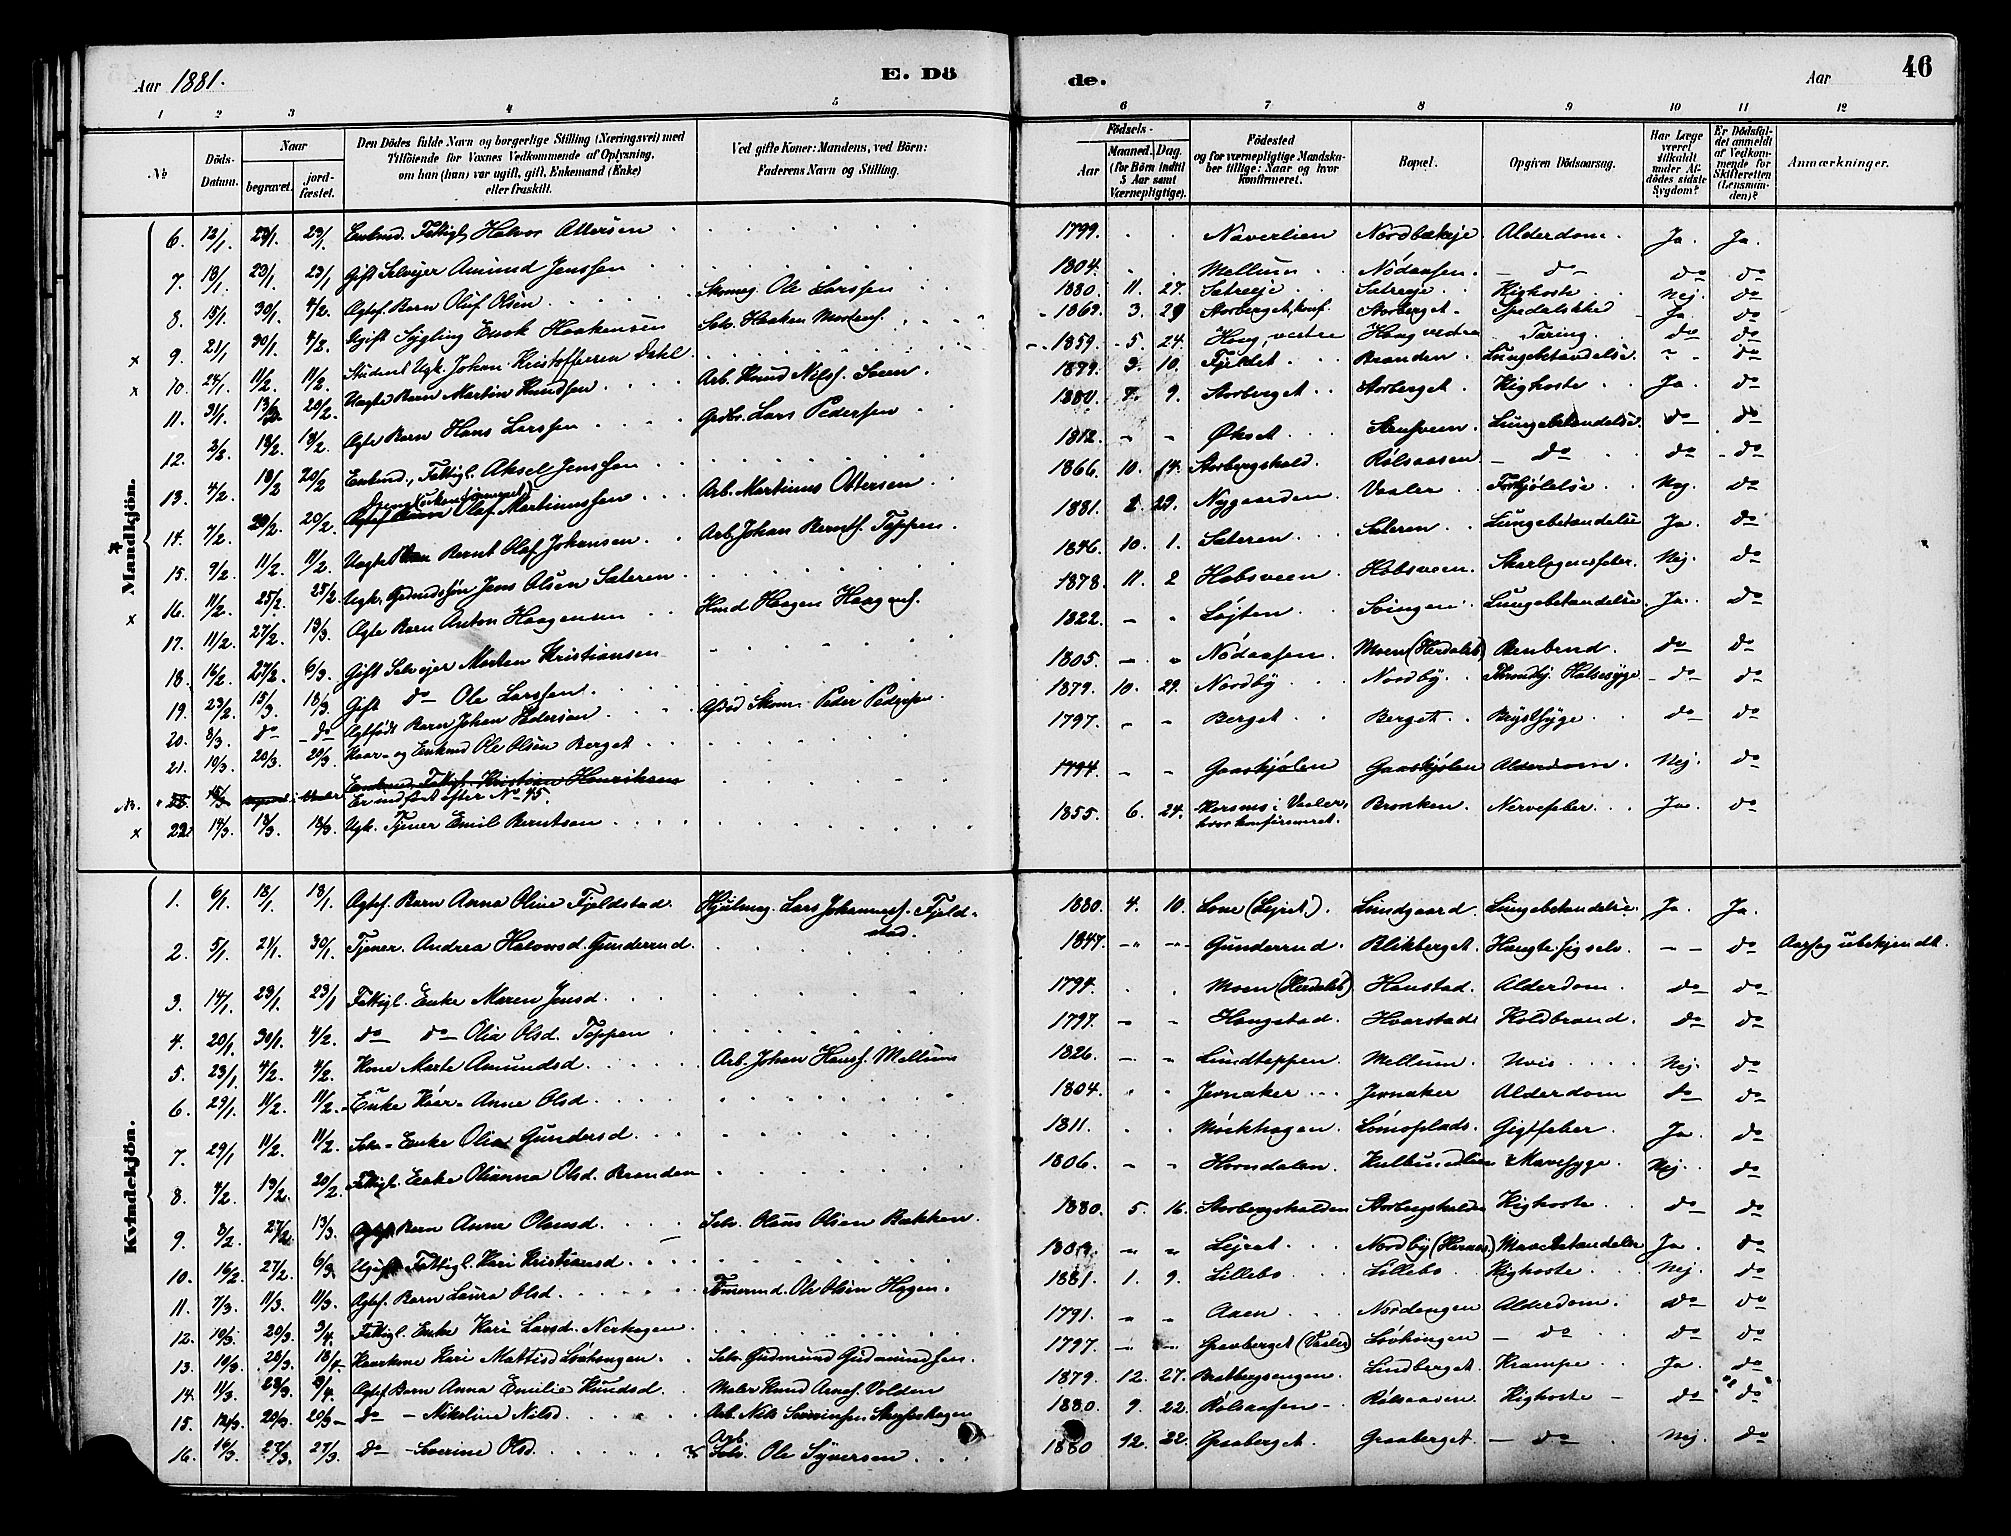 Aar 1881.
E. Dö
de.
Aar
46
1 2 3 4 5 6 7 8 9 10 11 12
No
Döds-Datum.
Naar
begravet.
jord-fæstet.
Den Dödes fulde Navn og borgerlige Stilling (Næringsvei) med
Tilföiende for Voxnes Vedkommende af Oplysning,
om han (hun) var ugift, gift, Enkemand (Enke)
eller fraskilt.
Ved gifte Koner: Mandens, ved Börn:
Faderens Navn og Stilling.
Födsels-
Aar
Maaned. Dag.
(for Börn indtil
5 Aar samt
Værnepligtige).
Födested
og for værnepligtige Mandska-
ber tillige: Naar og hvor
konfirmeret.
Bopæl.
Opgiven Dödsaarsag.
Har Læge
været
tilkaldt
under Af-
dödes sidste
Sygdom?
Er Dödsfal-
det anmeldt
af Vedkom-
mende for
Skifteretten
(Lensman-
den)?
Anmærkninger.
Mandkjön.
6. 12/1. 23/1. 23/1. Enkmd. Fattigl. Halvor Ottersen 1799. Naverlien Nordbækeje Alderdom. Ja. Ja.
7. 13/1. 23/1. 23/1. Gift Selvejer Amund Jenssen 1804. Mellum Nödaasen. do do do
8. 15/1. 30/1. 4/2. Ægtef. Barn Oluf Olsen Skomag. Ole Larssen 1880. 11. 27. Sætreeje Sætreeje Kighoste Nej. do
x 9. 21/1. 30/1. 4/2. Ugift Sygling Haakensen Selv. Haaken Mortens. 1862. 3. 29 Storberget, konf. Storberget. Spedalskhed Ja do
x 10. 24/1. 11/2. 11/2. Student Ugk. Johan Kristoffersen Dahl 1859. 5. 24. Haug, vestre Haug vestre Tæring do do
11. 31/1. 13/2. 20/2. Uægte Barn Martin Knudsen Arb. Knud Nilss. Sveen 1879. 3. 10. Fjeldet Branden Lungebetændelse. do
12. 2/2. 18/2. 18/2. Ægte Barn Hans Larssen Gaardbr. Lars Pedersen 1880. 9. Storberget Storberget Kighoste Ja. do
13. 4/2. 18/2 20/2 Enkmd., Fattigl. Aksel Jenssen 1812. Økset Stensveen Lungebetændelse. do do
14. 7/2. 20/2. 20/2. Olaf Martinussen Arb. Martinus Ottersen 1866. 10. 14. Storbergshald. Rølsaasen do do do
15. 9/2. 11/2. 11/2. Uægte Barn Bernt Olaf Johansen Arb. Johan Bernts. Toppen. 1881. 29. Nygaarden Vaaler Forkjølelse Nej. do
x 16. 11/2. 25/2. 25/2. Ugk. Grdmdssøn Jens Olsen Sæteren 1846. 10. 1. Sæteren Sæteren Lungebetændelse Ja. do
17. 11/2. 27/2. 13/3. Ægte Barn Anton Haagensen Hmd Haagen Haagens. 1878. 11. 2 Habsveen Habsveen Skarlagensfeber. Nej. do
18. 16/2. 27/2. 6/3. Gift Selvejer Morten Kristiansen 1822. Løjten Svingen Lungebetændelse. Ja. do
19. 23/2. 15/3. 18/3. Gift do Ole Larssen 1805. Nödaasen. Moen (Herdalsb) Benbrud. do do
20. 8/3. do do Ægtefødt Barn Johan Pedersen Afdød Skom. Peder Pedersen 1879. 10. 29. Nordby Nordby. Halssyge do do
21. 10/3. 20/3. 20/3. Kaar- og Enkmd Ole Olsen Berget 1797. Berget Berget Brystsyge do do
NB. Enkmd. Fattigl. Kristian Henriksen 1794. Gaaskjølen Gaaskjølen Alderdom. Nej. do
Er indført efter No 45.
x 22. 14/3. 18/3. 18/3. Ugk. Tjener Emil Berntsen 1855. 6. 24. i Vaaler, hvor konfirmeret. Bronken Nervefeber Ja. do
Kvindekjön.
1. 6/1. 13/1. 13/1. Ægtef. Barn Anna Oline Fjeldstad Hjulmag. Lars Johanness. Fjeld-
stad. 1880. 4. 10. Lone (Lejret). Lundgaard. Lungebetændelse. Ja. Ja.
2. 5/1. 21/1. 30/1. Tjener. Andrea Halvorsd. Gunderud. 1847. Gunderud. Blikberget. Hængte sig selv. do Aarsag ubekjendt.
3. 14/1. 23/1. 23/1 Fattigl. Enke Maren Jensd. 1794. Moen (Herdalsb) Hanstad. Alderdom. do do
4. 20/1. 30/1. 4/2. do do Olia Olsd. Toppen 1797. Haugstad. Hvarstad Koldbrand. do do
5. 23/1. 4/2. 4/2. Kone Marte Amundsd. Arb. Johan Hanss. Mellum 1826. Lundtoppen. Mellum. Uvis Nej. do
6. 23/1. 11/2. 11/2. Enke Kaar- Anne Olsd. 1804. Jernaker Jernaker Alderdom do do
7. 29/1 11/2. 11/2. Selv. Enke Olia Gundersd. 1811. Mørkhagen. Lomoplads. Gigtfeber. Ja. do
8. 4/2. 13/2. 20/2. Fattigl. Enke Olianna Olsd. Branden 1806. Horndalen. Mavesyge. Nej. do
9. 8/2. 27/2. 13/3. Barn Anne Olausd. Selv. Olaus Olsen Bakken. 1880. 5. 16. Storbergshalden Storbergshalden Kighoste. do do
10. 16/2. 27/2. 6/3. Ugift Fattigl. Kari Kristiansd. Lejret Nordby (Hernæs) Mavebetændelse Ja. do
11. 7/3. 11/3. 11/3. Ægtef. Barn Laura Olsd. Tømmermd. Ole Olsen Hagen. 1881. 1. 9. Lillebo Lillebo Kighoste Nej. do
12. 10/3. 20/3. 3/4. Fattigl. Enke Kari Larsd. Nerhagen. 1791. Aaen Nordengen Alderdom. do do
13. 10/3. 28/3. 18/4. Kaarkone Kari Mattisd. Løvhaugen. Selv. Gudmund Gudmundsen. 1797. Graaberget (Vaaler) Løvhaugen do do do
14. 11/3. 28/3. 3/4. Ægtef. Barn Anna Emilie Knudsd. Maler Knud Arnes. Volden 1879. 12. 27. Bratbergsengen. Lindberget. Krampe Ja. do
15. 12/3. 20/3. 20/3 do Nikoline Nilsd. Arb. Nils Severinsen 1880. 9. 22. Rølsaasen Rølsaasen. Kighoste do do
16. 16/3. 27/3. 27/3. do Severine Olsd. Arb. Ole Syversen 1880 12. 22. Graaberget. Graaberget. do Nej. do